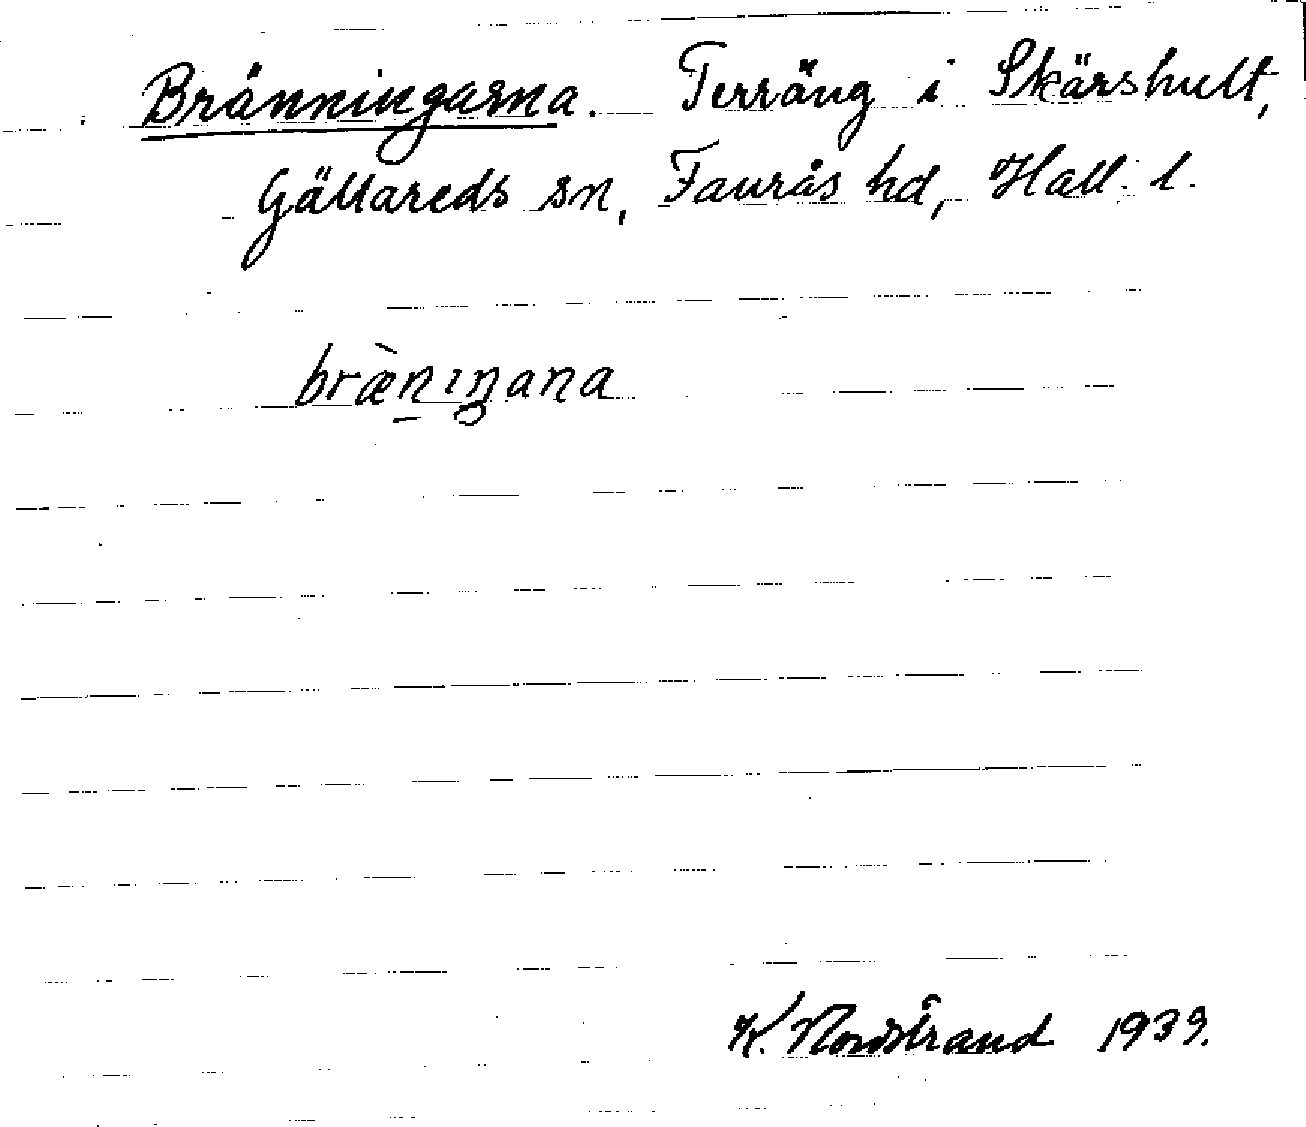 Bränningarna. Terräng i Skärshult,
Gällareds sn, Faurås hd, Hall. l.
bræ̀n̠ıŋana
K. Nordstrand 1939.